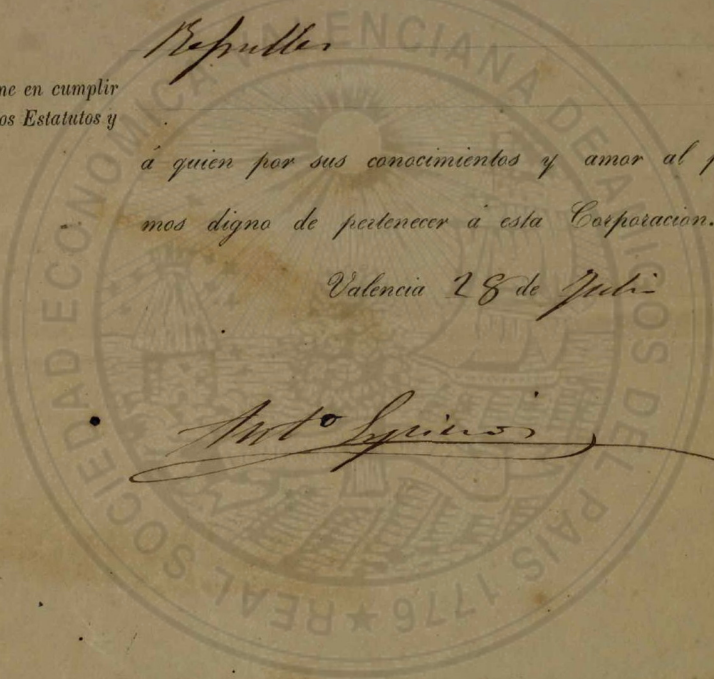 Repullés
me en cumplir
os Estatutos y
á quien por sus conocimientos y amor al p
mos digno de pertenecer á esta Corporación.
Valencia 28 de Julio
Ant.º
REAL SOCIEDAD ECONOMICA VALENCIANA DE AMIGOS DEL PAIS 1776